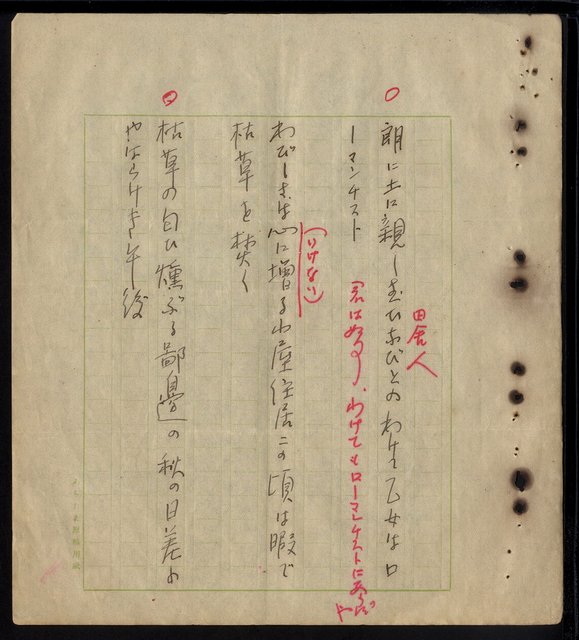 ○
朗に土に親しむひなびとのわけて乙女はロ
ーマンチスト
田舎人
君は如何、わけてもローマンチストにあらずや
わびしさは心に増る小屋住居この頃は暇で
(いけない)
枯草を焚く
○
枯草の匂ひ燻ぶる鄙邊の秋の日差の
やはらけき午後